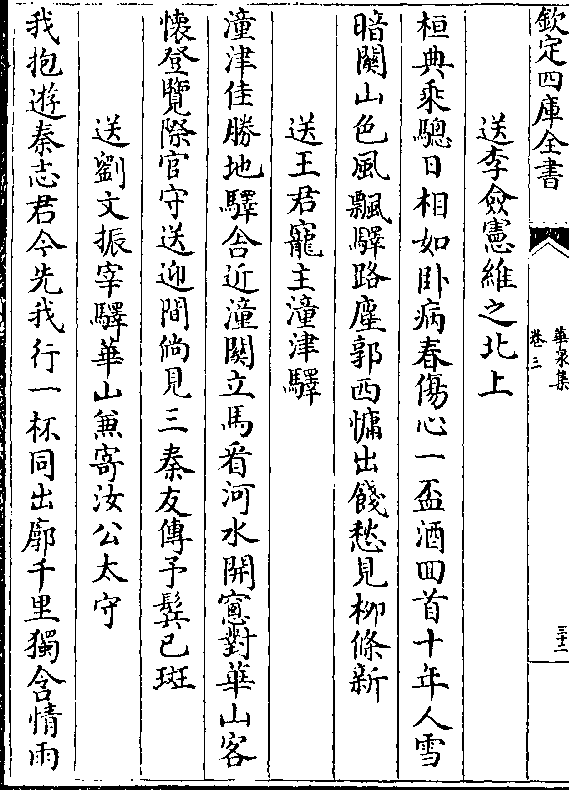 欽定四庫全書
華泉集
卷三
三十二
送李僉憲維之北上
桓典乘驄日相如卧病春傷心一盃酒回首十年人雪
暗闗山色風飄驛路塵郭西慵出餞愁見柳條新
送王君寵主潼津驛
潼津佳勝地驛舎近潼闗立馬看河水開窻對華山客
懐登覽際官守送迎間倘見三秦友傳予鬂已斑
送劉文振宰驛華山兼寄汝公太守
我抱遊秦志君今先我行一杯同出廓千里獨含情雨